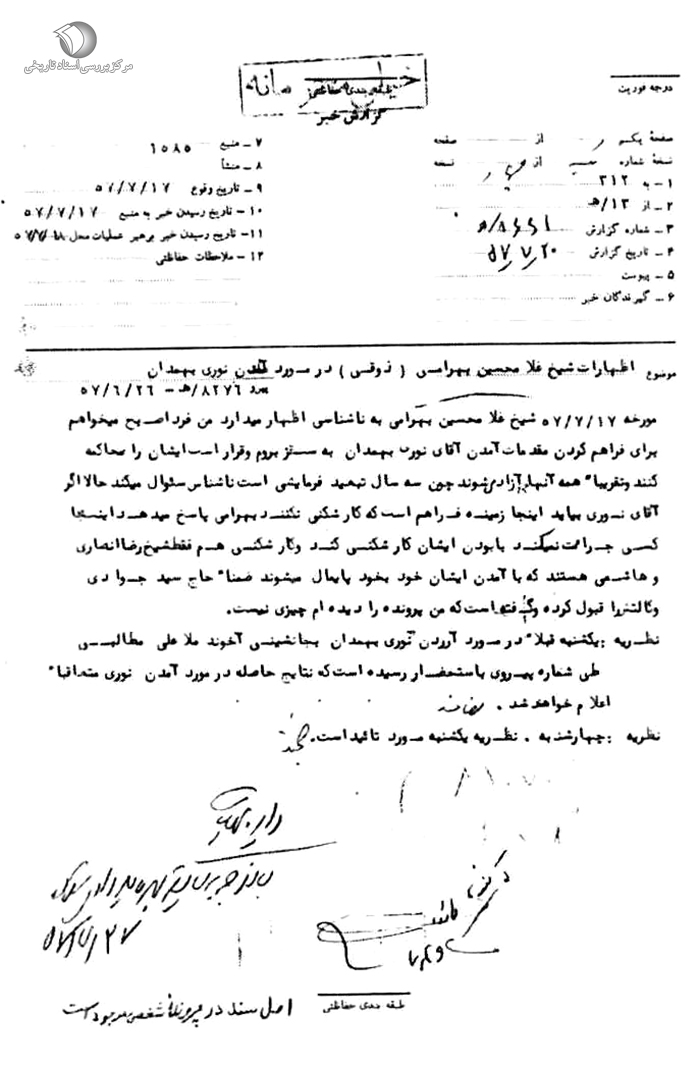 مرکز بررسی اسناد تاریخی
خیلی محرمانه
طبقه‌بندی حفاظتی
گزارش خبر
درجه فوریت
صفحهٔ یکم از صفحه
نسخهٔ شماره از نسخه
۱ - به ۳۱۲
۲ - از ۱۳/هـ
۳ - شماره گزارش
۴ - تاریخ گزارش ۵۷/۷/۲۰
۵ - پیوست
۶ - گیرندگان خبر
۷ - منبع ۱۰۸۵
۸ - منشأ
۹ - تاریخ وقوع ۵۷/۷/۱۷
۱۰ - تاریخ رسیدن خبر به منبع ۵۷/۷/۱۷
۱۱ - تاریخ رسیدن خبر برهبر عملیات محل ۵۷/۷/۱۸
۱۲ - ملاحظات حفاظتی
موضوع اظهارات شیخ غلامحسین بهرامی (ذوقی) در مورد آمدن نوری بهمدان
۸۲۷۶/هـ - ۵۷/۶/۲۶
مورخه ۵۷/۷/۱۷ شیخ غلامحسین بهرامی به ناشناسی اظهار میدارد من فردا صبح میخواهم
برای فراهم کردن مقدمات آمدن آقای نوری بهمدان به سقز بروم و قرار است ایشان را محاکمه
کنند و تقریبا" همه آنها آزاد میشوند چون سه سال تبعید فرمایشی است ناشناس سئوال میکند حالا اگر
آقای نوری بیاید اینجا زمینه فراهم است که کارشکنی نکنند بهرامی پاسخ میدهد اینجا
کسی جرات نمیکند بابودن ایشان کارشکنی کند و کارشکنی هم فقط شیخ رضا انصاری
و هاشمی هستند که با آمدن ایشان خود بخود پایمال میشوند ضمنا" حاج سید جوادی
وکالتش را قبول کرده و گفته است که من پرونده را دیده ام چیزی نیست.
نظریه : یکشنبه قبلا" در مورد آوردن نوری بهمدان بجانشینی آخوند ملا علی مطالبی
طی شماره پیروی باستحضار رسیده است که نتایج حاصله در مورد آمدن نوری متعاقبا"
اعلام خواهد شد.
نظریه : چهارشنبه . نظریه یکشنبه مورد تائید است.
طبقه بندی حفاظتی
اصل سند در پروندهٔ شخصی موجود است